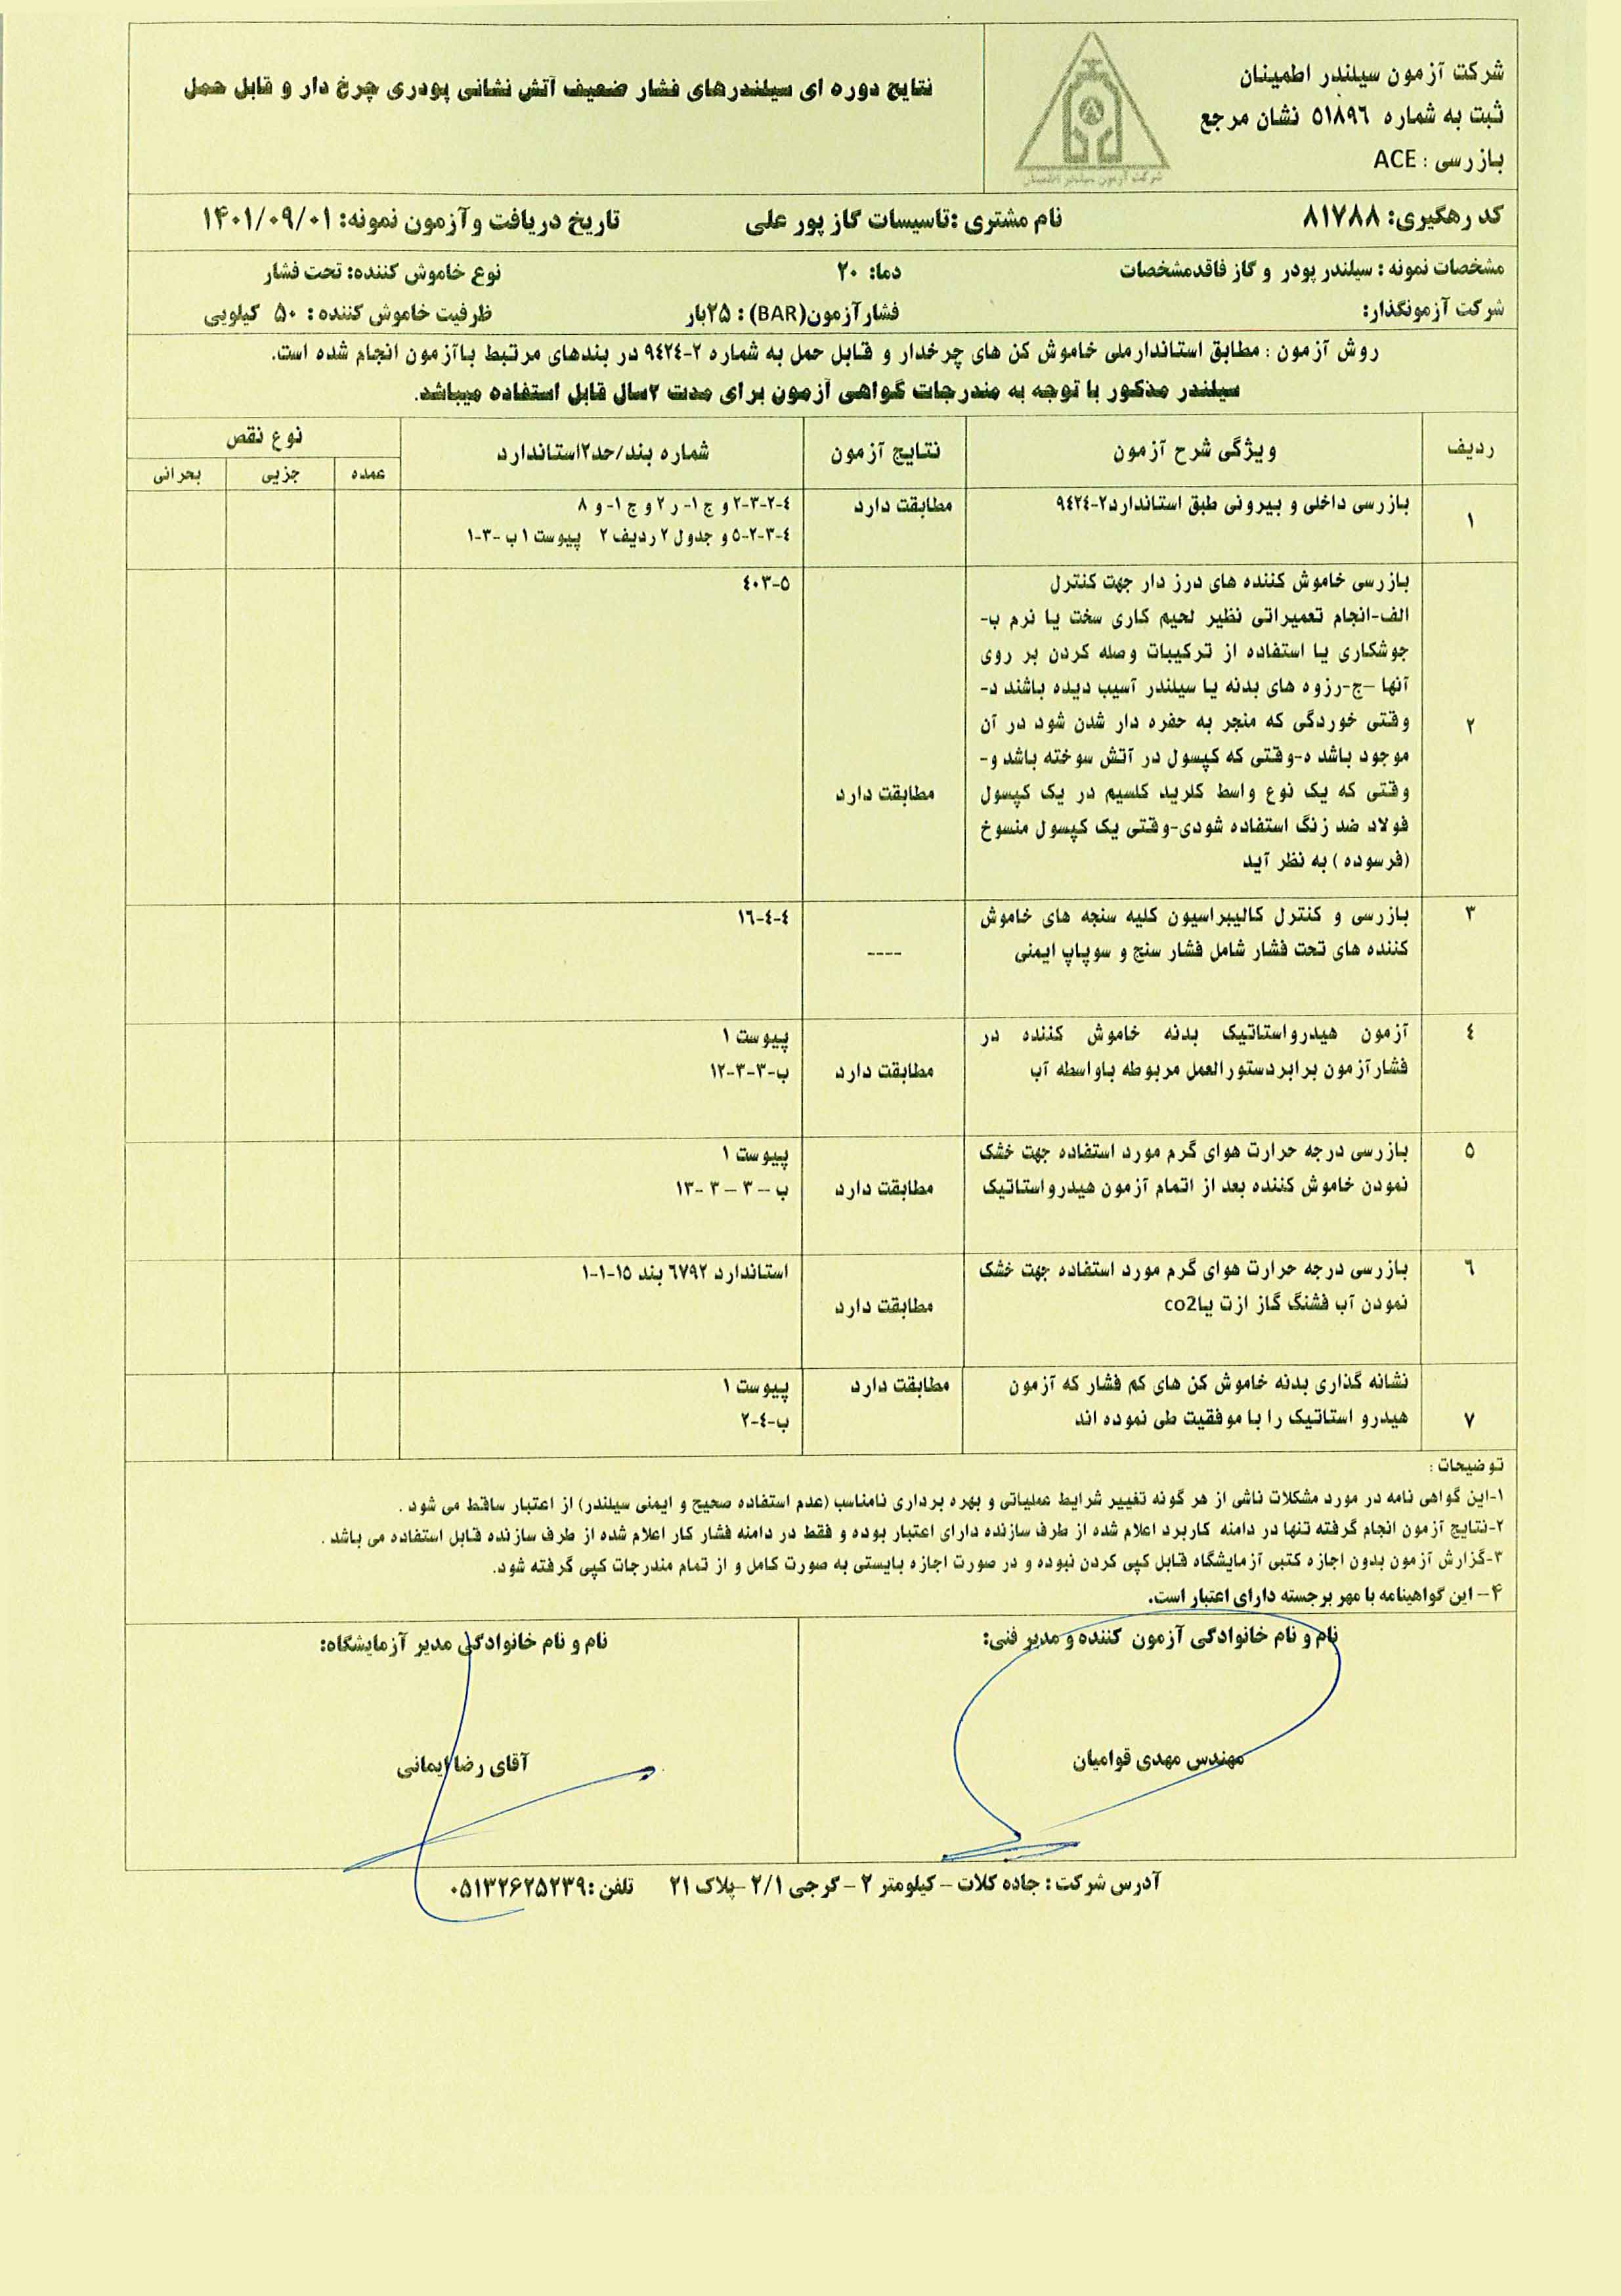 شرکت آزمون سیلندر اطمینان
ثبت به شماره ٥١٨٩٦ نشان مرجع
بازرسی : ACE
شرکت آزمون سیلندر اطمینان
نتایج دوره ای سیلندرهای فشار ضعیف آتش نشانی پودری چرخ دار و قابل حمل
کد رهگیری: ۸۱۷۸۸ نام مشتری :تاسیسات گاز پور علی تاریخ دریافت و آزمون نمونه: ۱۴۰۱/۰۹/۰۱
مشخصات نمونه : سیلندر پودر و گاز فاقدمشخصات دما: ۲۰ نوع خاموش کننده: تحت فشار
شرکت آزمونگذار: فشارآزمون(BAR) : ۲۵بار ظرفیت خاموش کننده : ۵۰ کیلویی
روش آزمون : مطابق استاندارملی خاموش کن های چرخدار و قابل حمل به شماره ۲-٩٤٢٤ در بندهای مرتبط باآزمون انجام شده است.
سیلندر مذکور با توجه به مندرجات گواهی آزمون برای مدت ۲سال قابل استفاده میباشد.
ردیف ویژگی شرح آزمون نتایج آزمون شماره بند/حد۲استاندارد نوع نقص
عمده جزیی بحرانی
١ بازرسی داخلی و بیرونی طبق استاندارد۲-٩٤٢٤ مطابقت دارد ٤-٢-٣-٢ و ج ١- ر ٢ و ج ١- و ٨
٤-٣-٢-٥ و جدول ٢ ردیف ٢ پیوست ١ ب -٣-١
٢ بازرسی خاموش کننده های درز دار جهت کنترل ٥-٤٠٣
الف-انجام تعمیراتی نظیر لحیم کاری سخت یا نرم ب-
جوشکاری یا استفاده از ترکیبات وصله کردن بر روی
آنها –ج-رزوه های بدنه یا سیلندر آسیب دیده باشند د-
وقتی خوردگی که منجر به حفره دار شدن شود در آن
موجود باشد ه-وقتی که کپسول در آتش سوخته باشد و-
وقتی که یک نوع واسط کلرید کلسیم در یک کپسول مطابقت دارد
فولاد ضد زنگ استفاده شودی-وقتی یک کپسول منسوخ
(فرسوده ) به نظر آید
٣ بازرسی و کنترل کالیبراسیون کلیه سنجه های خاموش ٤-٤-١٦
کننده های تحت فشار شامل فشار سنج و سوپاپ ایمنی ----
٤ آزمون هیدرواستاتیک بدنه خاموش کننده در پیوست ١
فشارآزمون برابردستورالعمل مربوطه باواسطه آب مطابقت دارد ب-٣-٣-١٢
٥ بازرسی درجه حرارت هوای گرم مورد استفاده جهت خشک پیوست ١
نمودن خاموش کننده بعد از اتمام آزمون هیدرواستاتیک مطابقت دارد ب – ٣ – ٣ -١٣
٦ بازرسی درجه حرارت هوای گرم مورد استفاده جهت خشک استاندارد ٦٧٩٢ بند ١٥-١-١
نمودن آب فشنگ گاز ازت یاco2 مطابقت دارد
٧ نشانه گذاری بدنه خاموش کن های کم فشار که آزمون مطابقت دارد پیوست ١
هیدرو استاتیک را با موفقیت طی نموده اند ب-٤-٢
توضیحات :
١-این گواهی نامه در مورد مشکلات ناشی از هر گونه تغییر شرایط عملیاتی و بهره برداری نامناسب (عدم استفاده صحیح و ایمنی سیلندر) از اعتبار ساقط می شود .
٢-نتایج آزمون انجام گرفته تنها در دامنه کاربرد اعلام شده از طرف سازنده دارای اعتبار بوده و فقط در دامنه فشار کار اعلام شده از طرف سازنده قابل استفاده می باشد .
٣-گزارش آزمون بدون اجازه کتبی آزمایشگاه قابل کپی کردن نبوده و در صورت اجازه بایستی به صورت کامل و از تمام مندرجات کپی گرفته شود.
۴– این گواهینامه با مهر برجسته دارای اعتبار است.
نام و نام خانوادگی آزمون کننده و مدیر فنی: نام و نام خانوادگی مدیر آزمایشگاه:
مهندس مهدی قوامیان آقای رضا ایمانی
آدرس شرکت : جاده کلات – کیلومتر ۲ – گرجی ۲/۱ –پلاک ۲۱ تلفن :۰۵۱۳۲۶۲۵۲۳۹